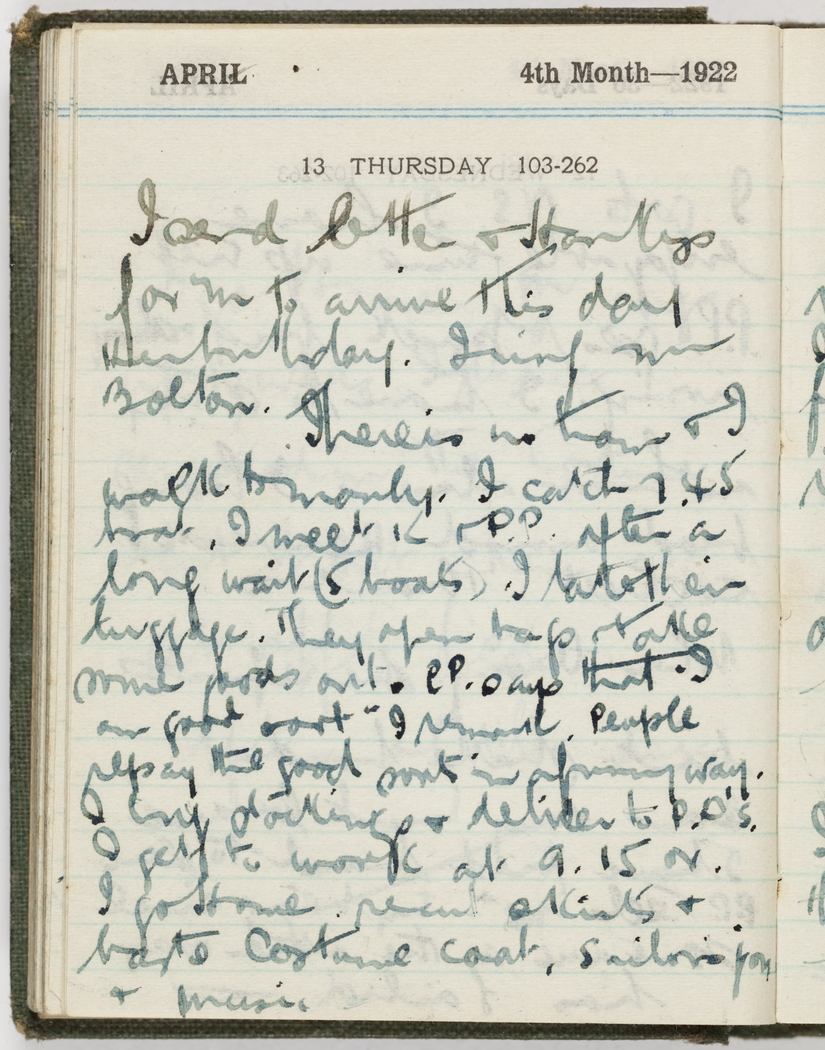 APRIL
4th Month—1922
13 THURSDAY 103-262
I send letter & Hankys
for M to arrive this day
Her birthday. I ring
Bolton.
There is no tram & I
walk to Manly. I catch 7.45
boat, I meet K & P.P. after a
long wait (5 boats). I take their
luggage. They open bags & take
some goods out. P.P. says that "I
am good sort" I remark, People
repay the good sort in a funny way.
I buy stockings & deliver to P.O's.
I get to work at 9.15 or.
I go Home, recut skirts &
baste Costume coat,
& music